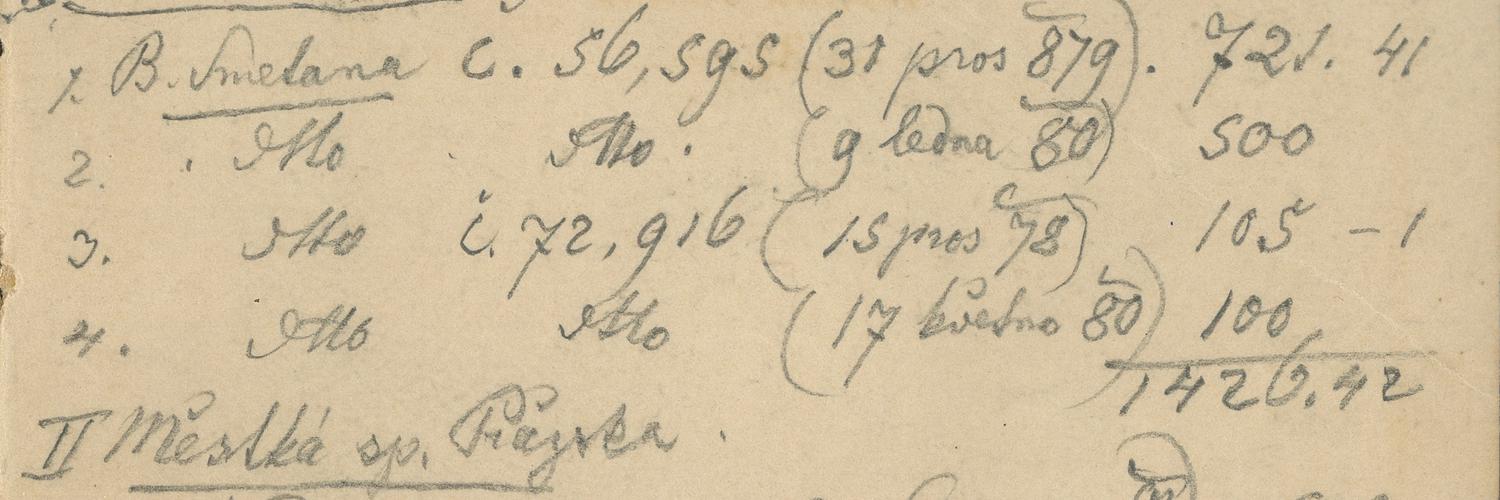 1. B. Smetana č. 56,595 (31 pros 879). 721. 41
2. dtto dtto. (9 ledna 80) 500
3. dtto č. 72,916 (15 pros 78) 105 – 1
4. dtto dtto (17 května 80) 100
1426.42
II Městká sp. Pražska